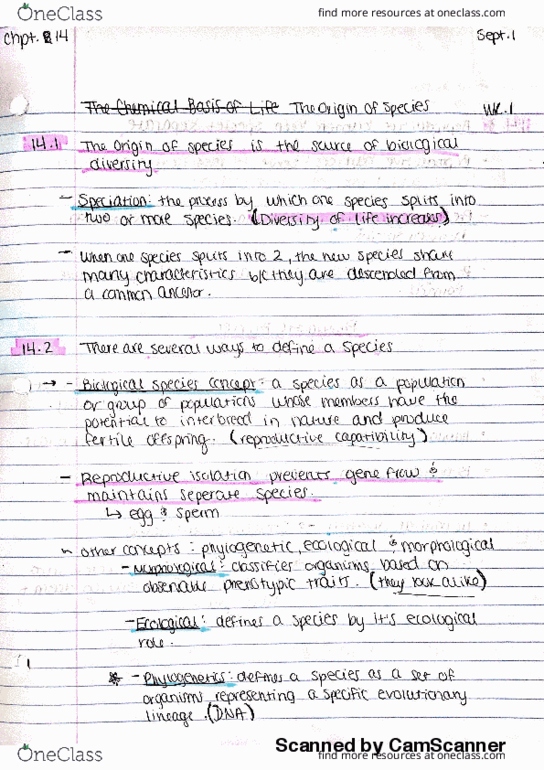 OneClass
find more resources at oneclass.com
Chpt. 14
Sept. 1
The Chemical Basis of Life The Origin of Species
WK. 1
14.1 The origin of species is the source of biological
diversity
- Speciation: the process by which one species splits into
two or more species. (Diversity of life increases)
- When one species splits into 2, the new species share
many characteristics b/c they are descended from
a common ancestor.
14.2 There are several ways to define a species
→ - Biological species concept: a species as a population
or group of populations whose members have the
potential to interbreed in nature and produce
fertile offspring. (reproductive capability)
- Reproductive isolation prevents gene flow &
maintains seperate species.
↳ egg & sperm
~ other concepts: phylogenetic, ecological & morphological
- Morphological: classifies organisms based on
observable phenotypic traits. (they look alike)
- Ecological: defines a species by it's ecological
role.
* - Phylogenetics: defines a species as a set of
organisms representing a specific evolutionary
lineage. (DNA)
Scanned by CamScanner
OneClass
find more resources at oneclass.com